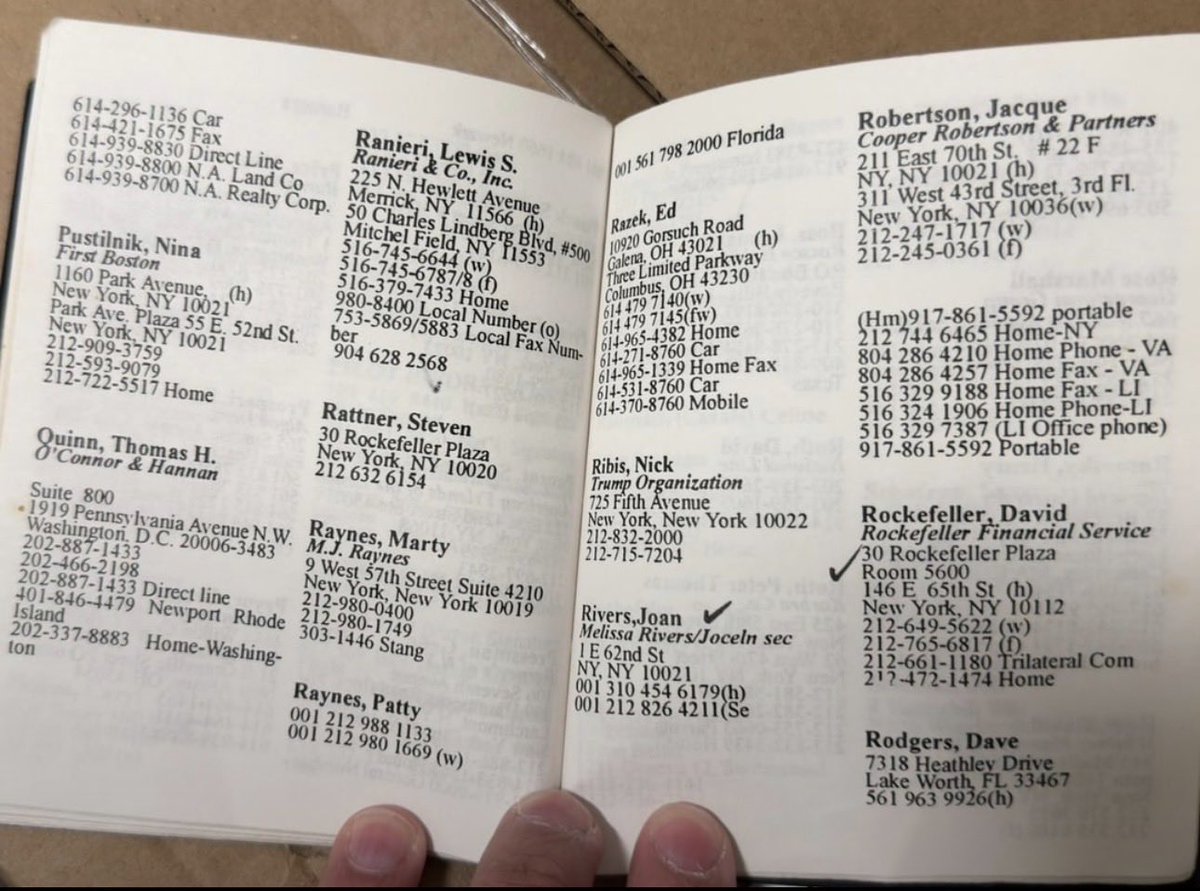 614-296-1136 Car
614-421-1675 Fax
614-939-8830 Direct Line
614-939-8800 N.A. Land Co
614-939-8700 N.A. Realty Corp.
Pustilnik, Nina
First Boston
1160 Park Avenue, (h)
New York, NY 10021
Park Ave. Plaza 55 E. 52nd St.
New York, NY 10021
212-909-3759
212-593-9079
212-722-5517 Home
Quinn, Thomas H.
O'Connor & Hannan
Suite 800
1919 Pennsylvania Avenue N.W.
Washington, D.C. 20006-3483
202-887-1433
202-466-2198
202-887-1433 Direct line
401-846-4479 Newport Rhode
Island
202-337-8883 Home-Washing-
ton
Ranieri, Lewis S.
Ranieri & Co., Inc.
225 N. Hewlett Avenue
Merrick, NY 11566 (h)
50 Charles Lindberg Blvd, #500
Mitchel Field, NY 11553
516-745-6644 (w)
516-745-6787/8 (f)
516-379-7433 Home
980-8400 Local Number (o)
753-5869/5883 Local Fax Num-
ber
904 628 2568
Rattner, Steven
30 Rockefeller Plaza
New York, NY 10020
212 632 6154
Raynes, Marty
M.J. Raynes
9 West 57th Street Suite 4210
New York, New York 10019
212-980-0400
212-980-1749
303-1446 Stang
Raynes, Patty
001 212 988 1133
001 212 980 1669 (w)
001 561 798 2000 Florida
Razek, Ed
10920 Gorsuch Road
Galena, OH 43021 (h)
Three Limited Parkway
Columbus, OH 43230
614 479 7140(w)
614 479 7145(fw)
614-965-4382 Home
614-271-8760 Car
614-965-1339 Home Fax
614-531-8760 Car
614-370-8760 Mobile
Ribis, Nick
Trump Organization
725 Fifth Avenue
New York, New York 10022
212-832-2000
212-715-7204
Rivers,Joan
Melissa Rivers/Joceln sec
1 E 62nd St
NY, NY 10021
001 310 454 6179(h)
001 212 826 4211(Se
Robertson, Jacque
Cooper Robertson & Partners
211 East 70th St # 22 F
NY, NY 10021 (h)
311 West 43rd Street, 3rd Fl.
New York, NY 10036(w)
212-247-1717 (w)
212-245-0361 (f)
(Hm)917-861-5592 portable
212 744 6465 Home-NY
804 286 4210 Home Phone - VA
804 286 4257 Home Fax - VA
516 329 9188 Home Fax - LI
516 324 1906 Home Phone-LI
516 329 7387 (LI Office phone)
917-861-5592 Portable
Rockefeller, David
Rockefeller Financial Service
30 Rockefeller Plaza
Room 5600
146 E 65th St (h)
New York, NY 10112
212-649-5622 (w)
212-765-6817 (f)
212-661-1180 Trilateral Com
Home
Rodgers, Dave
7318 Heathley Drive
Lake Worth, FL 33467
561 963 9926(h)